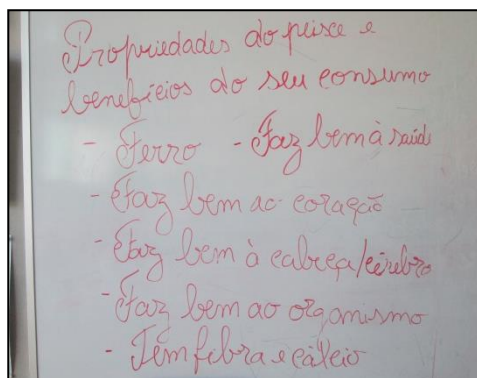 Propriedades do peixe e
benefícios do seu consumo
- Ferro - Faz bem à saúde
- Faz bem ao coração
- Faz bem à cabeça/cérebro
- Faz bem ao organismo
- Tem fibra e cálcio